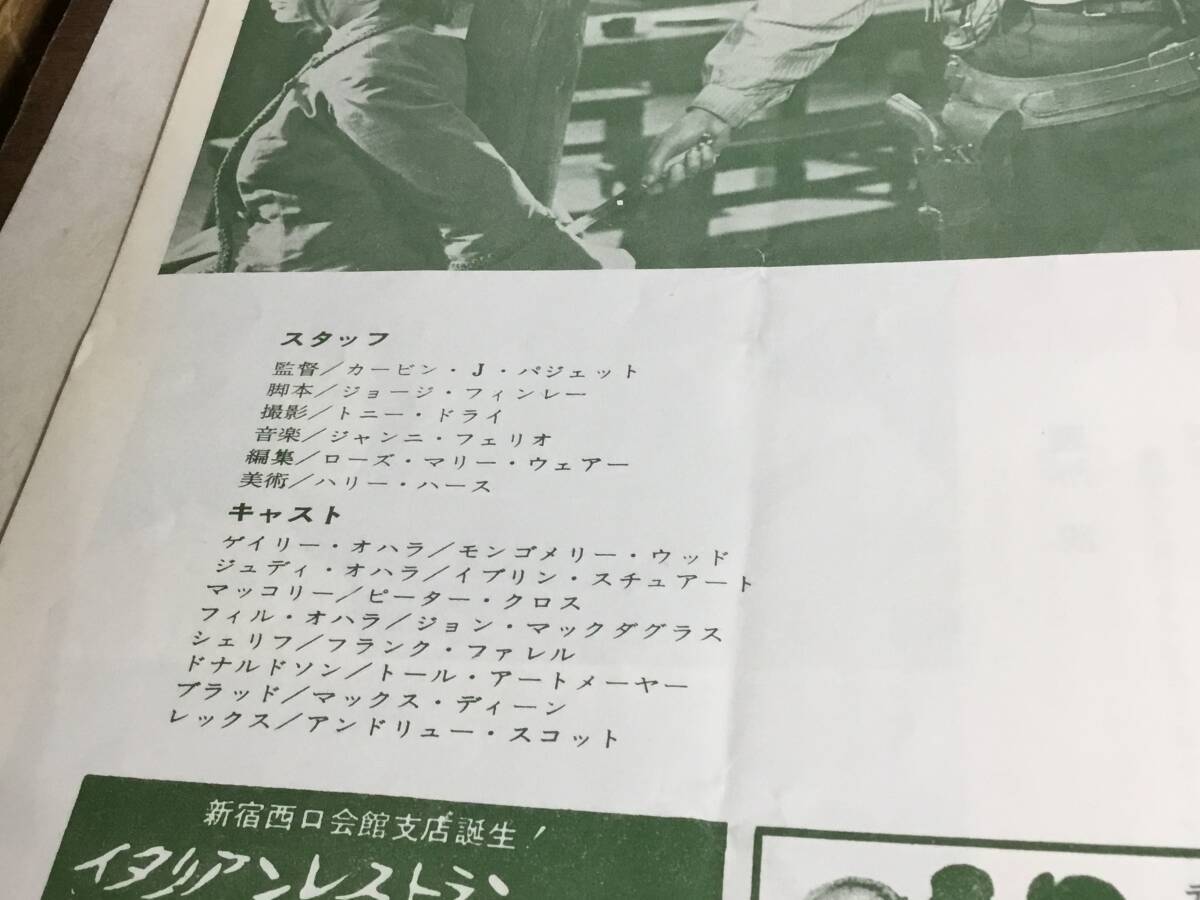 スタッフ
監督／カービン・J・パジェット
脚本／ジョージ・フィンレー
撮影／トニー・ドライ
音楽／ジャンニ・フェリオ
編集／ローズ・マリー・ウェアー
美術／ハリー・ハース
キャスト
ゲイリー・オハラ／モンゴメリー・ウッド
ジュディ・オハラ／イブリン・スチュアート
マッコリー／ピーター・クロス
フィル・オハラ／ジョン・マックダグラス
シェリフ／フランク・ファレル
ドナルドソン／トール・アートメーヤー
ブラッド／マックス・ディーン
レックス／アンドリュー・スコット
新宿西口会館支店誕生！
イタリアンレストラン